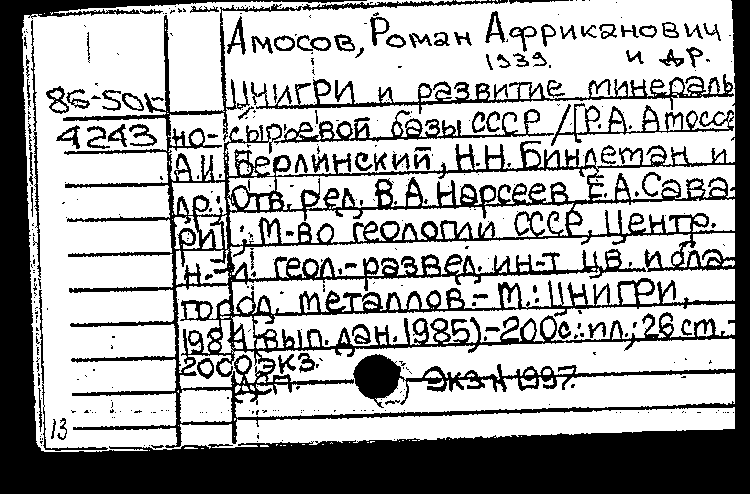 Амосов, Роман Африканович
1939. и др.
86-50к ЦНИГРИ и развитие минераль
4243 но-сырьевой базы СССР /[Р.А. Амосов
А.И. Берлинский, Н.Н. Биндеман и
др.; Отв. ред. В.А. Нарсеев, Е.А. Сава-
ри]; М-во геологии СССР, Центр.
н.-и. геол.-развед. ин-т цв. и бла-
город. металлов.- М.: ЦНИГРИ,
1984 вып. дан. 1985).-200с.: ил.; 26 см.-
2000 экз.
ДСП. Экз N 1997.
13